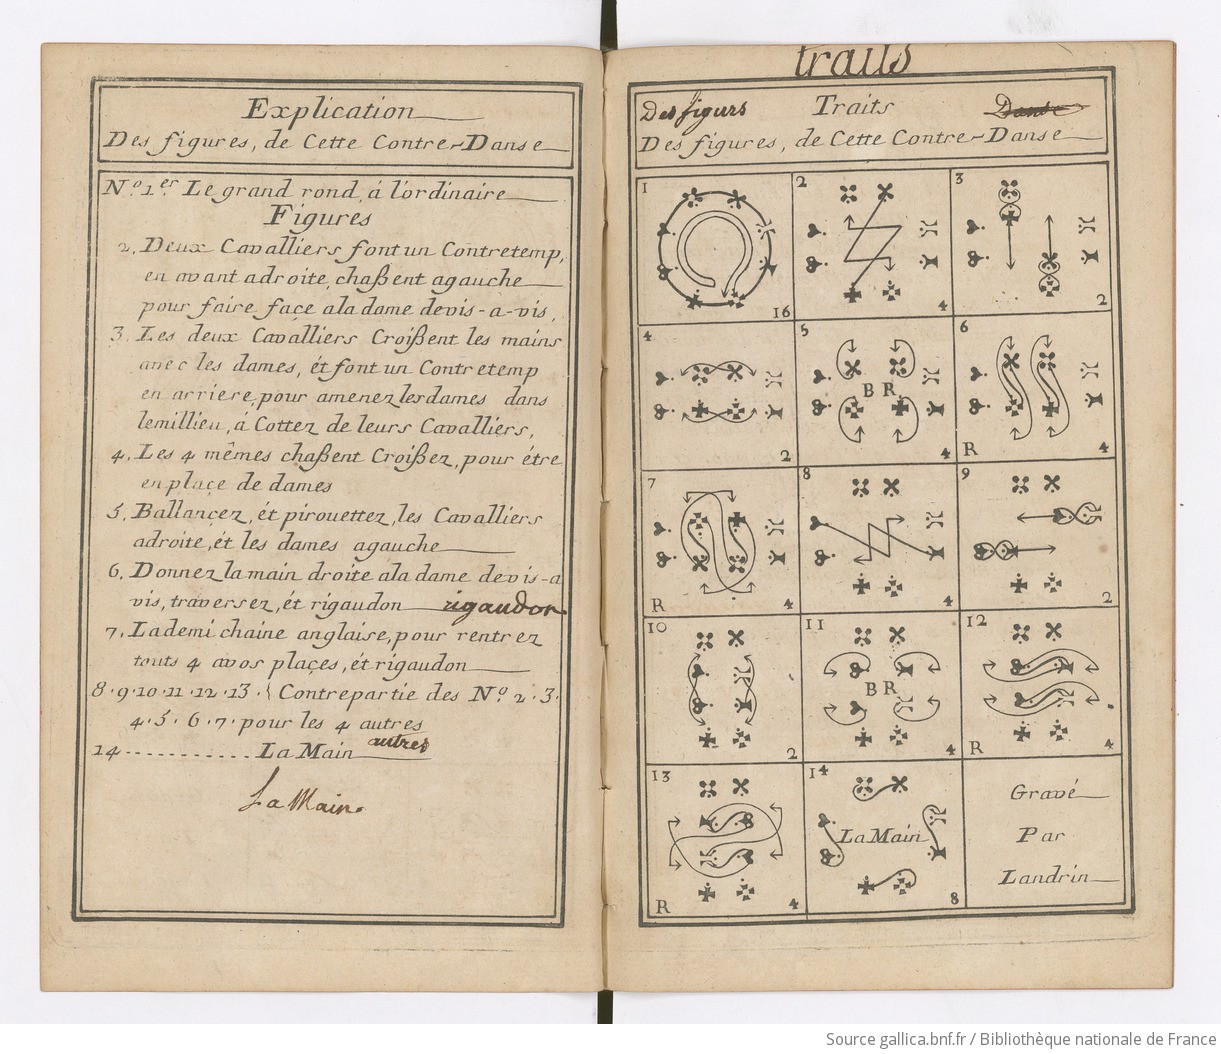 Explication
Des figures, de Cette Contre-Danse
N.o 1.er Le grand rond, á l'ordinaire
Figures
2. Deux Cavalliers font un Contretemp,
en avant adroite, chaßent agauche
pour faire façe ala dame devis-a-vis,
3. Les deux Cavalliers Croißent les mains
avec les dames, ét font un Contretemp
en arriere, pour amenez les dames dans
lemillieu, á Cottez de leurs Cavalliers,
4. Les 4 mêmes chaßent Croißez, pour étre
en plaçe de dames
5. Ballançez, ét pirouettez, les Cavalliers
adroite, ét les dames agauche
6. Donnez la main droite ála dame devis-a
vis, traversez, ét rigaudon rigaudon
7. Lademi chaine anglaise, pour rentrez
touts 4 avos plaçes, ét rigaudon
8.9.10.11.12.13. { Contrepartie des N.o 2.3.
4.5.6.7. pour les 4 autres
autres
14 ............ La Main
La Main.
traits
Des figurs Traits Danse
Des figures, de Cette Contre-Danse
1 2 3
16 4 2
4 5 6
B R
2 4 R 4
7 8 9
R 4 4 2
10 11 12
B R
2 4 R 4
13 14
La Main
R 4 8
Gravé
Par
Landrin
Source gallica.bnf.fr / Bibliothèque nationale de France